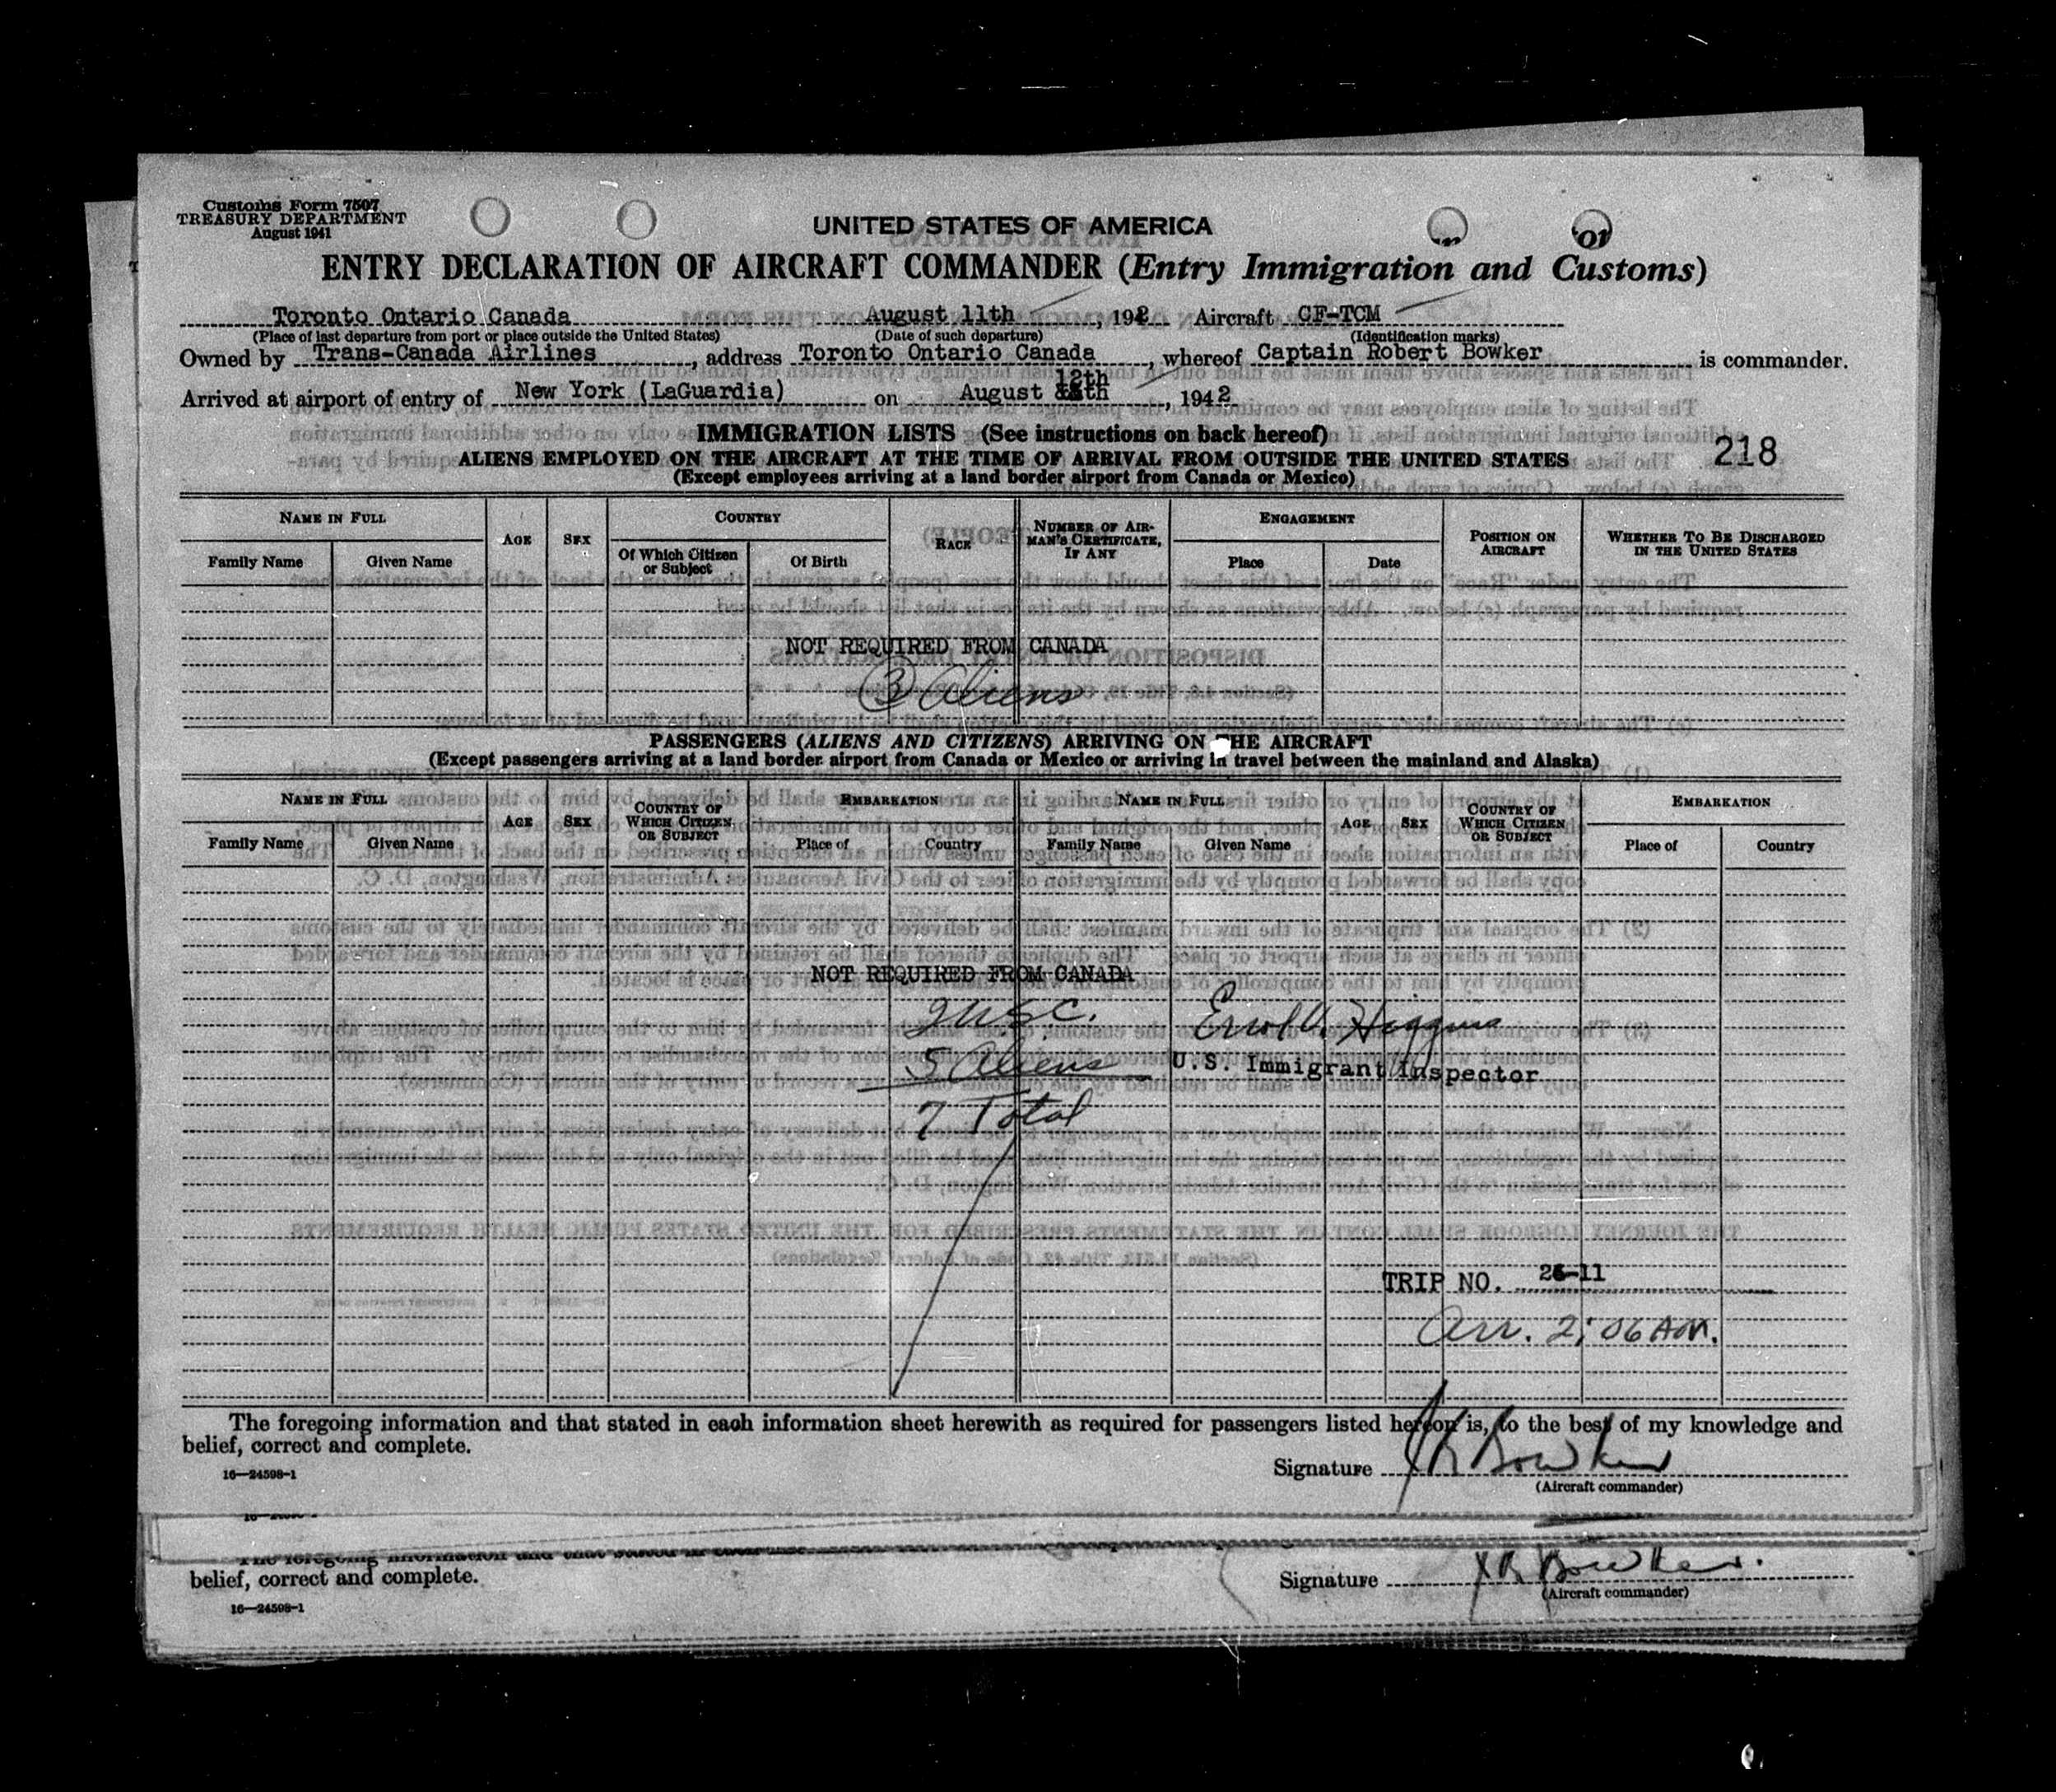 Customs Form 7507
TREASURY DEPARTMENT
August 1941
UNITED STATES OF AMERICA
ENTRY DECLARATION OF AIRCRAFT COMMANDER (Entry Immigration and Customs)
Toronto Ontario Canada August 11th, 1942 Aircraft CF-TCM
(Place of last departure from port or place outside the United States) (Date of such departure) (Identification marks)
Owned by Trans-Canada Airlines, address Toronto Ontario Canada, whereof Captain Robert Bowker is commander.
Arrived at airport of entry of New York (LaGuardia) on August 12th, 1942
IMMIGRATION LISTS (See instructions on back hereof)
218
ALIENS EMPLOYED ON THE AIRCRAFT AT THE TIME OF ARRIVAL FROM OUTSIDE THE UNITED STATES
(Except employees arriving at a land border airport from Canada or Mexico)
NAME IN FULL AGE SEX COUNTRY RACE NUMBER OF AIRMAN'S CERTIFICATE, IF ANY ENGAGEMENT POSITION ON AIRCRAFT WHETHER TO BE DISCHARGED IN THE UNITED STATES
Family Name Given Name Of Which Citizen or Subject Of Birth Place Date
NOT REQUIRED FROM CANADA
3 Aliens
PASSENGERS (ALIENS AND CITIZENS) ARRIVING ON THE AIRCRAFT
(Except passengers arriving at a land border airport from Canada or Mexico or arriving in travel between the mainland and Alaska)
NAME IN FULL AGE SEX COUNTRY OF WHICH CITIZEN OR SUBJECT EMBARKATION NAME IN FULL AGE SEX COUNTRY OF WHICH CITIZEN OR SUBJECT EMBARKATION
Family Name Given Name Place of Country Family Name Given Name Place of Country
NOT REQUIRED FROM CANADA
2 U.S.C. Errol A. Higgins
5 Aliens U.S. Immigrant Inspector
7 Total
TRIP NO. 26-11
Arr. 2:06 AM.
The foregoing information and that stated in each information sheet herewith as required for passengers listed hereon is, to the best of my knowledge and
belief, correct and complete.
16—24598-1
Signature Bowker
(Aircraft commander)
belief, correct and complete.
Signature Bowker
(Aircraft commander)
16—24598-1